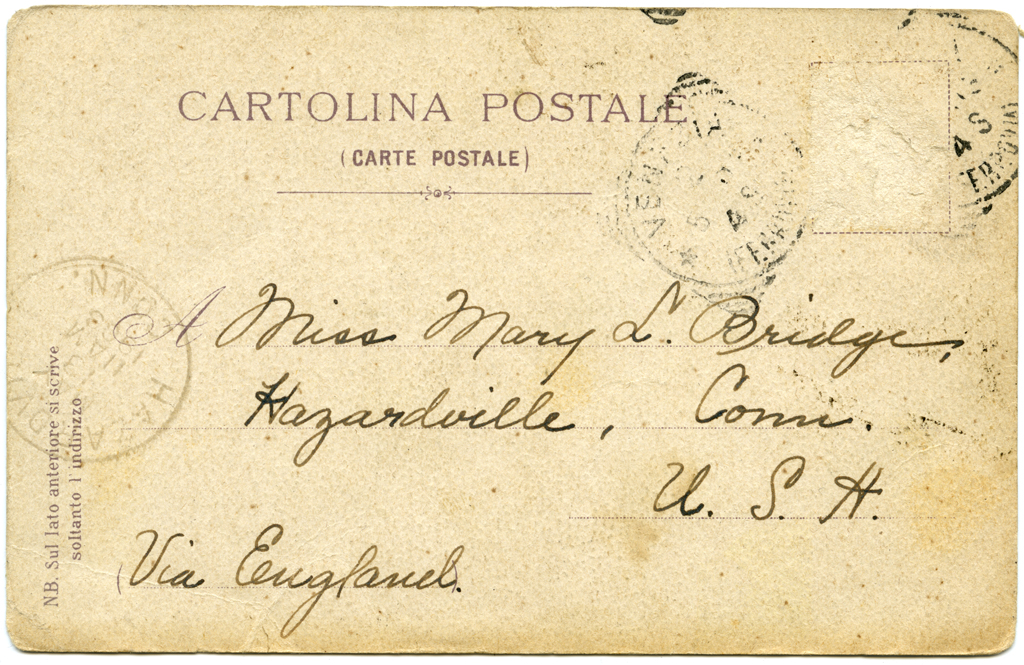 CARTOLINA POSTALE
(CARTE POSTALE)
A Miss Mary L. Bridge,
Hazardville, Conn.
U. S. A.
Via England.
N.B. Sul lato anteriore si scrive
soltanto l'indirizzo